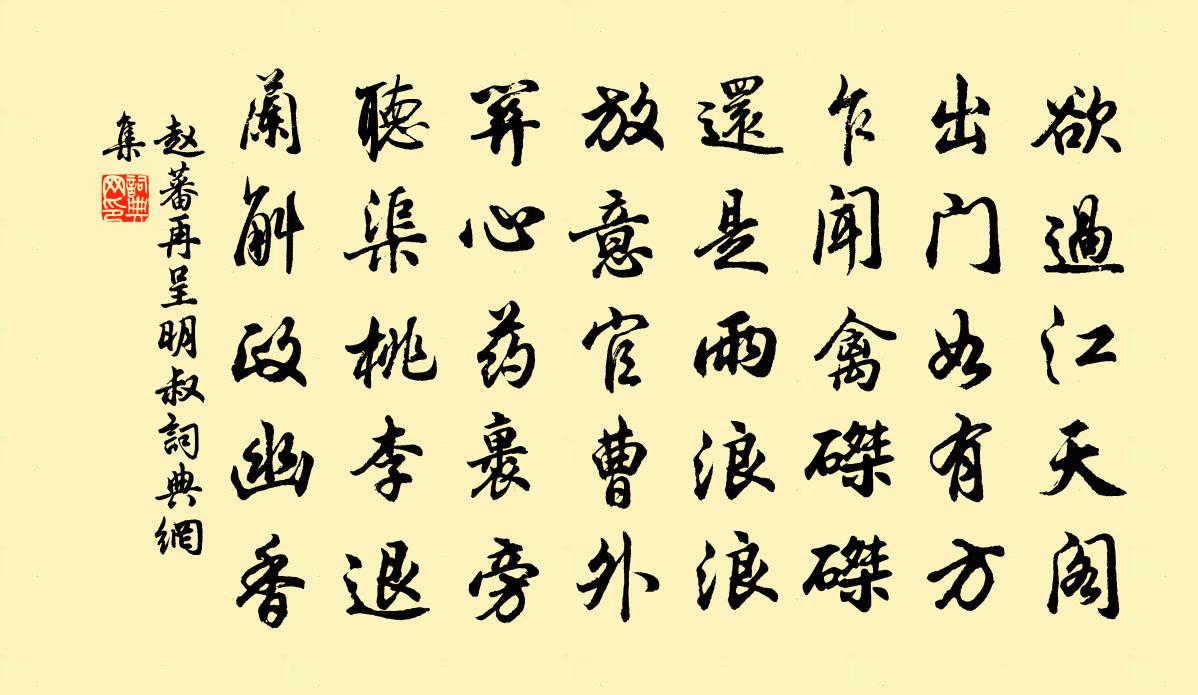 欲過江天閣
出門如有方
乍聞禽磔磔
還是雨浪浪
放意官曹外
關心药裹旁
聽渠桃李退
蘭斛政幽香
赵蕃再呈明叔詞典網
集
詞典网印